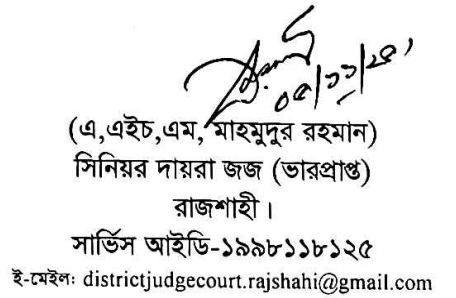 ০৫/১১/২৫
(এ,এইচ,এম, মাহমুদুর রহমান)
সিনিয়র দায়রা জজ (ভারপ্রাপ্ত)
রাজশাহী ।
সার্ভিস আইডি-১৯৯৮১১৮১২৫
ই-মেইলঃ districtjudgecourt.rajshahi@gmail.com